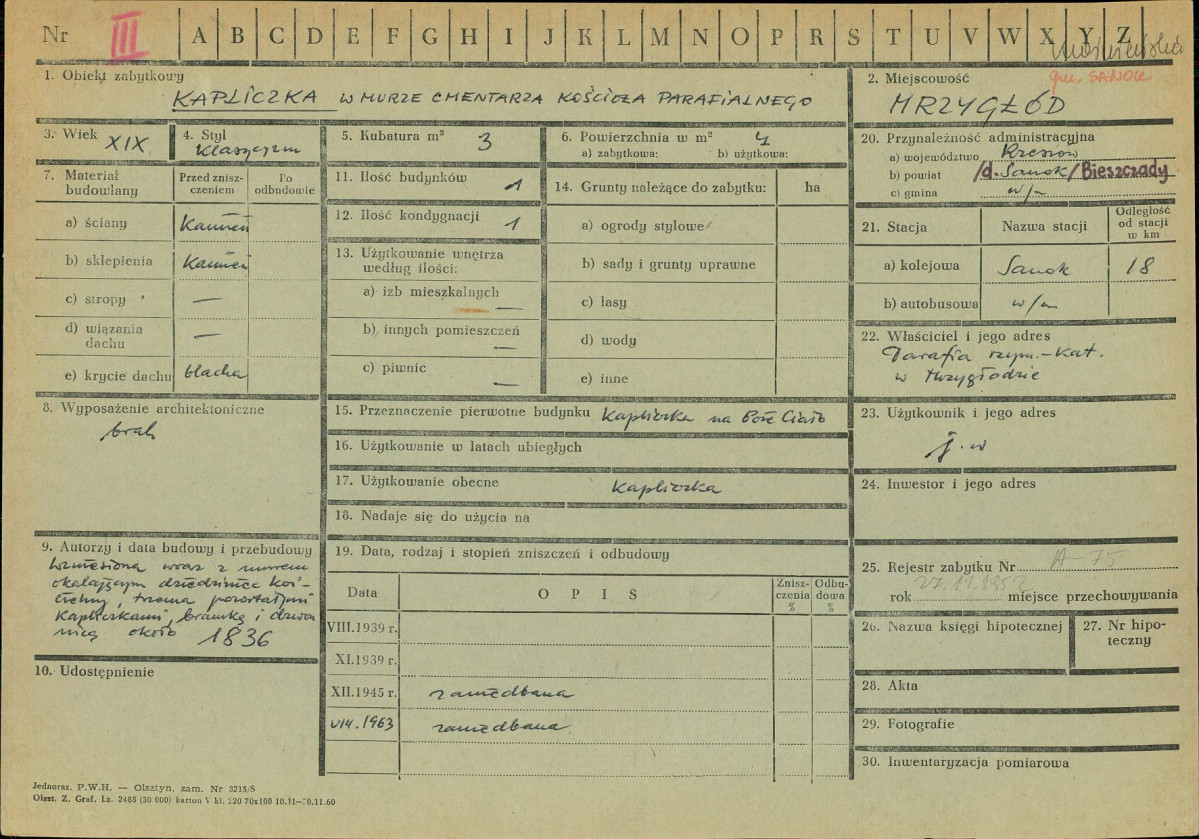 Nr III A B C D E F G H I J K L M N O P R S T U V W X Y Z
gm. SANOK
1. Obiekt zabytkowy
KAPLICZKA W MURZE CMENTARZA KOŚCIOŁA PARAFIALNEGO
2. Miejscowość
MRZYGŁÓD
3. Wiek XIX
4. Styl
Klasycyzm
5. Kubatura m³ 3
6. Powierzchnia w m² 4
a) zabytkowa: b) użytkowa:
20. Przynależność administracyjna
a) województwo Rzeszów
b) powiat /d. Sanok/Bieszczady
c) gmina w/m
7. Materiał budowlany
Przed znisz-
czeniem
Po
odbudowie
a) ściany Kamień
b) sklepienia Kamień
c) stropy —
d) wiązania
dachu —
e) krycie dachu blacha
11. Ilość budynków 1
12. Ilość kondygnacji 1
13. Użytkowanie wnętrza
według ilości:
a) izb mieszkalnych —
b) innych pomieszczeń —
c) piwnic —
14. Grunty należące do zabytku: ha
a) ogrody stylowe
b) sady i grunty uprawne
c) lasy
d) wody
e) inne
21. Stacja Nazwa stacji
Odległość
od stacji
w km
a) kolejowa Sanok 18
b) autobusowa w/m
22. Właściciel i jego adres
Parafia rzym.-Kat.
w Mrzygłodzie
8. Wyposażenie architektoniczne
brak
15. Przeznaczenie pierwotne budynku Kapliczka na Boże Ciało
16. Użytkowanie w latach ubiegłych
17. Użytkowanie obecne Kapliczka
18. Nadaje się do użycia na
23. Użytkownik i jego adres
j.w
24. Inwestor i jego adres
9. Autorzy i data budowy i przebudowy
Wzniesiona wraz z murem
okalającym dziedziniec koś-
cielny, trzema pozostałymi
Kapliczkami, bramką i dzwo
nicą około 1836
10. Udostępnienie
19. Data, rodzaj i stopień zniszczeń i odbudowy
Data OPIS
Znisz-
czenia
%
Odbu-
dowa
%
VIII.1939 r.
XI.1939 r.
XII.1945 r. zaniedbana
VIII.1963 zaniedbana
25. Rejestr zabytku Nr A-75
rok 27.11.1952 miejsce przechowywania
26. Nazwa księgi hipotecznej
27. Nr hipo-
teczny
28. Akta
29. Fotografie
30. Inwentaryzacja pomiarowa
Jednoraz. P.W.H. — Olsztyn, zam. Nr 3215/S
Olszt. Z. Graf. Lz. 2485 (30 000) karton V kl. 220 70x100 10.11—30.11.60